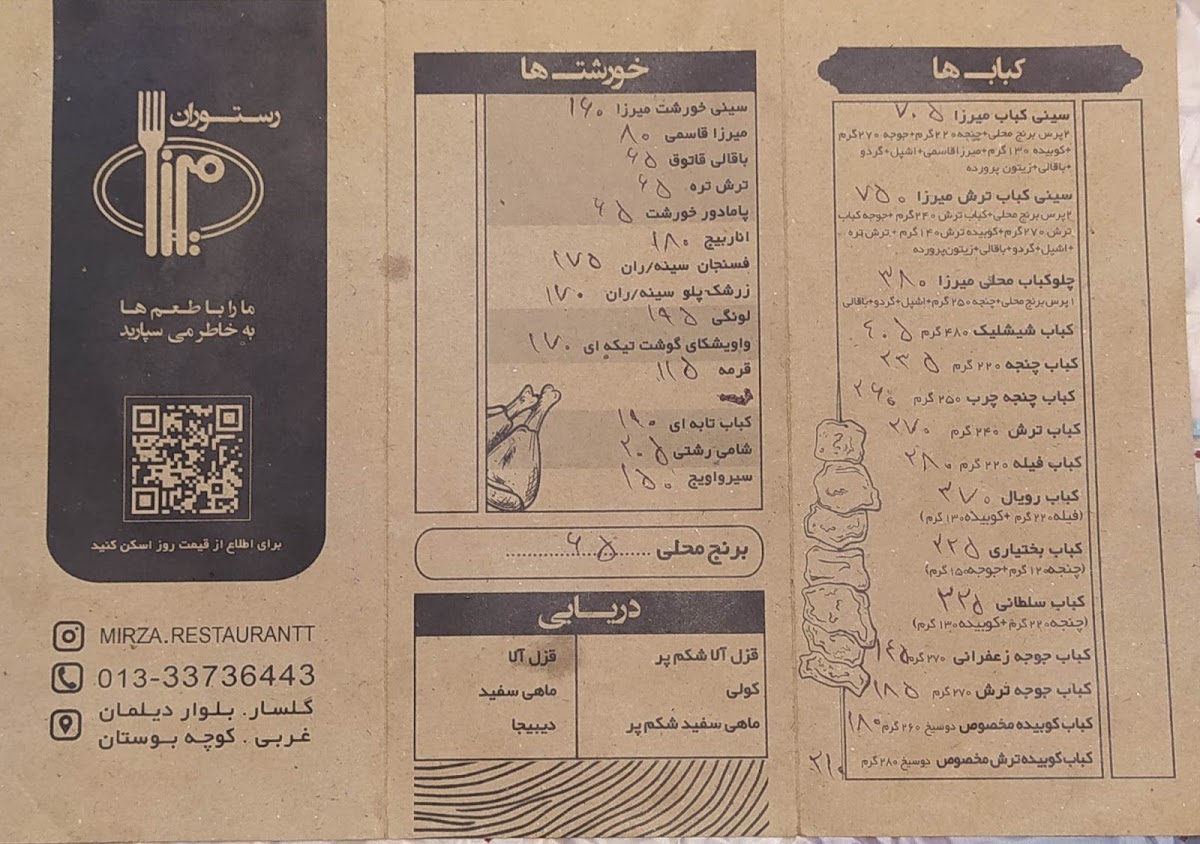 کباب ها
سینی کباب میرزا ۷۰۵
۲پرس برنج محلی+چنجه۲۲۰گرم+جوجه ۲۷۰گرم
+کوبیده ۱۳۰گرم+میرزاقاسمی+اشپل+گردو
+باقالی+زیتون پرورده
سینی کباب ترش میرزا ۷۵۰
۲پرس برنج محلی+کباب ترش ۲۴۰گرم +جوجه کباب
ترش ۲۷۰گرم+کوبیده ترش۱۴۰گرم + ترش تره
+اشپل+گردو+باقالی+زیتون‌پرورده
چلوکباب محلی میرزا ۳۸۰
۱پرس برنج محلی+چنجه ۲۵۰گرم+اشپل+گردو+باقالی
کباب شیشلیک ۴۸۰ گرم ۴۰۵
کباب چنجه ۲۲۰ گرم ۲۳۵
کباب چنجه چرب ۲۵۰ گرم ۲۶۰
کباب ترش ۲۴۰ گرم ۲۷۰
کباب فیله ۲۲۰ گرم ۲۸۰
کباب رویال ۳۷۰
(فیله۲۲۰ گرم +کوبیده۱۳۰ گرم)
کباب بختیاری ۲۲۵
(چنجه۱۲۰ گرم+جوجه۱۵۰ گرم)
کباب سلطانی ۳۲۵
(چنجه۲۲۰ گرم +کوبیده۱۳۰ گرم)
کباب جوجه زعفرانی ۲۷۰ گرم ۱۴۵
کباب جوجه ترش ۲۷۰ گرم ۱۸۵
کباب کوبیده مخصوص دوسیخ ۲۶۰ گرم ۱۸۰
کباب کوبیده ترش مخصوص دوسیخ ۲۸۰ گرم ۲۱۰
خورشت ها
سینی خورشت میرزا ۱۶۰
میرزا قاسمی ۸۰
باقالی قاتوق ۶۵
ترش تره ۶۵
پامادور خورشت ۶۵
اناربیج ۱۸۰
فسنجان سینه/ران ۱۷۵
زرشک‌پلو سینه/ران ۱۷۰
لونگی ۱۹۵
واویشکای گوشت تیکه ای ۱۷۰
قرمه ۱۱۵
کباب تابه ای ۱۹۰
شامی رشتی ۲۰۵
سیرواویج ۱۵۰
برنج محلی ........۶۵..............
دریایی
قزل آلا شکم پر
کولی
ماهی سفید شکم پر
قزل آلا
ماهی سفید
دیبیجا
رستوران
میرزا
ما را با طعم ها
به خاطر می سپارید
برای اطلاع از قیمت روز اسکن کنید
MIRZA.RESTAURANTT
013-33736443
گلسار . بلوار دیلمان
غربی . کوچه بوستان